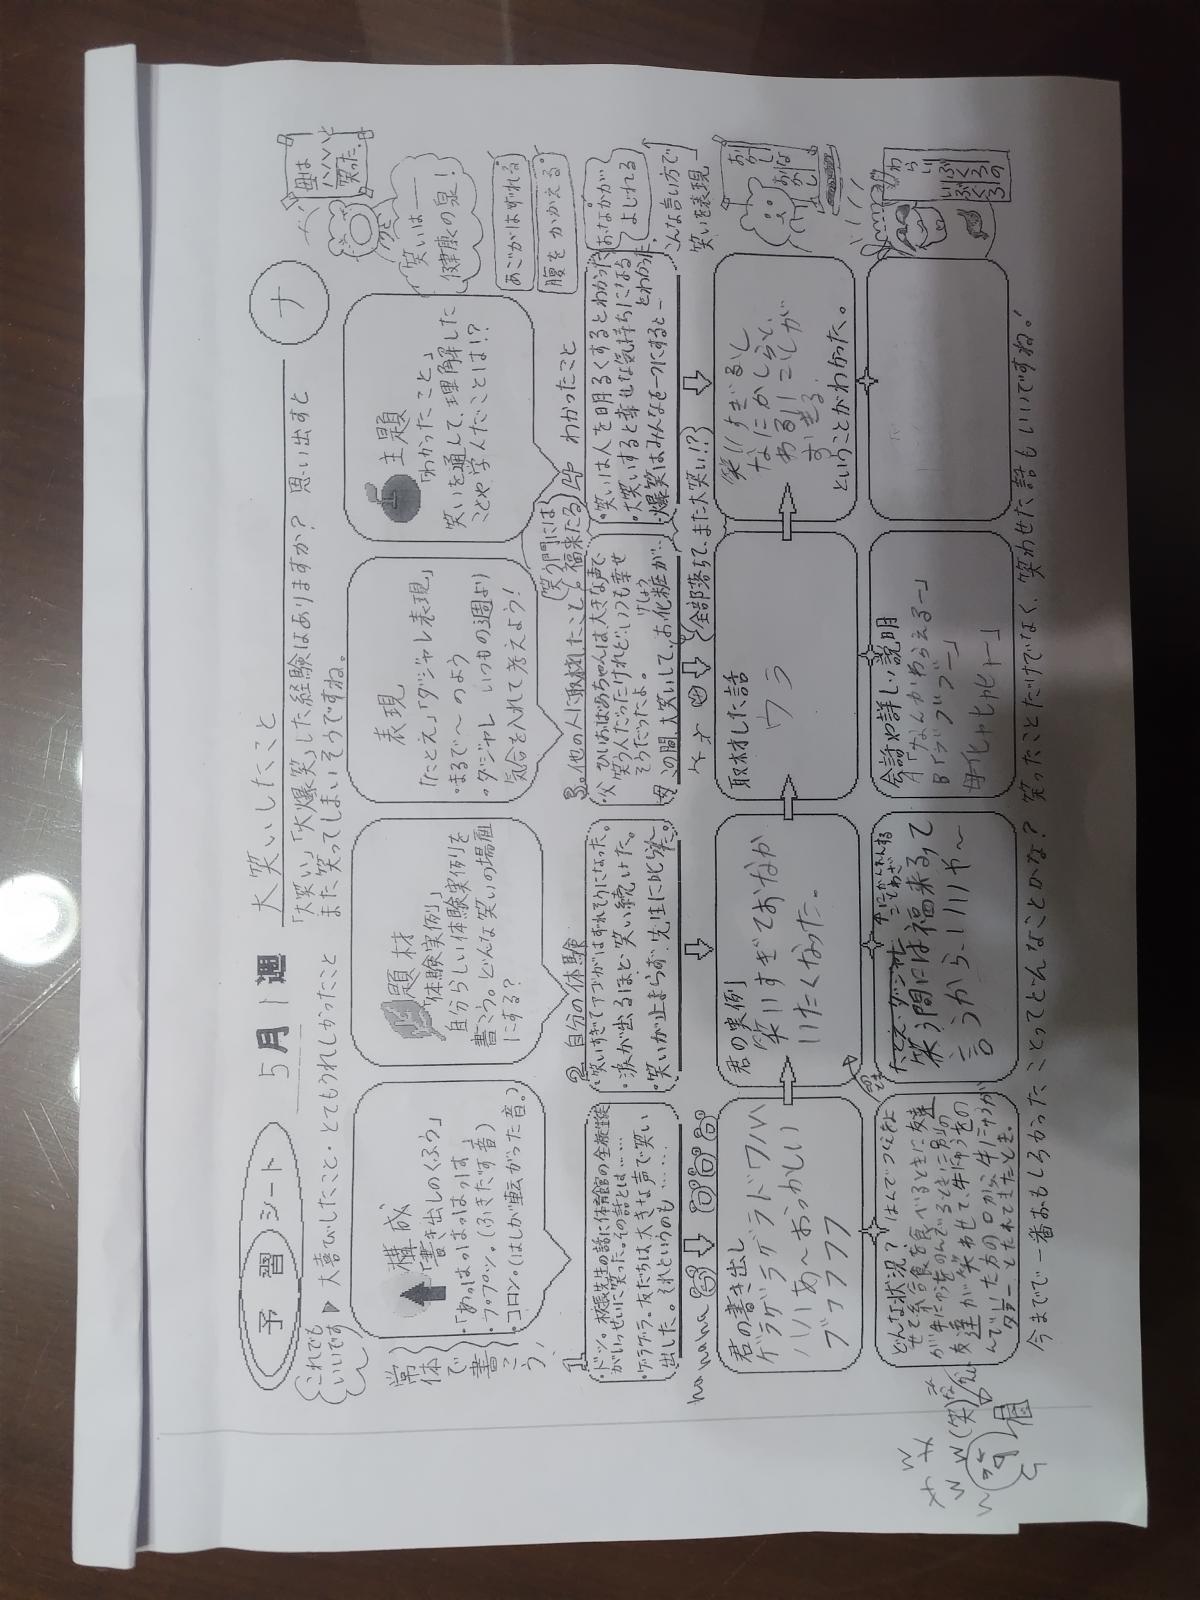 予習シート
5月1週
大笑いしたこと
ナ
これでも
いいです
▶大喜びしたこと・とてもうれしかったこと
「大笑い」「大爆笑」した経験はありますか？ 思い出すと
また笑ってしまいそうですね。
常体で書こう
構成
「書き出しのくふう」
・「わっはっはっはっはっ」
・プププッ。（ふきだす音）
・コロン。（はしが転がった音。）
題材
「体験実例」
自分らしい体験実例を
書こう。どんな笑いの場面
にする？
表現
「たとえ」「ダジャレ表現」
・まるで～のよう
・ダジャレ いつもの週より
気合を入れて考えよう！
主題
「わかったこと」
笑いを通して、理解した
ことや学んだことは！？
母は
ハハハと
笑った
笑いは―
健康の泉！
あごがはずれる
腹をかかえる
おなかが
よじれる
こんな言い方で
笑いを表現
1
・ドッ。校長先生の話に体育館の全校生徒
がいっせいに笑った。その話とは……
・ゲラゲラ。友だちは大きな声で笑い
出した。それというのも……
2 自分の体験
・笑いすぎてアゴがはずれそうになった。
・涙が出るほど、笑い続けた。
・笑いが止まらず先生に叱られた。
3 他の人に取材したこと
・父 ひいおばあちゃんは大きな声で
笑う人だったけれど、いつも幸せ
そうだったよ。
・母 この間、大笑いして、お化粧が、
全部落ちて、また大笑い！？
笑う門には
福来たる
4 わかったこと
・笑いは人を明るくするとわかった
・大笑いすると幸せな気持ちになる
とわかった。
・爆笑はみんなを一つにすると―
hahaha
君の書き出し
ゲラゲラゲラドワハハ
ハハあ～おっかしい
ブフフフフフ
君の実例
笑いすぎておなか
いたくなった。
取材した話
ウラ
笑いすぎるし
なにかしらと、
わるいことしが
すぎる
ということがわかった。
どんな状況？
せて給食を食べるときに友達
が牛にゅうをのんでるときに別の
友達が笑わせて、牛にゅうをの
んでした方の口から牛にゅうが
ダァーとたれてきたとき。
たとえ・ダジャレ
笑う間には福来るって
言うから、いいや～
会話や詳しい説明
A「なんかわらえるー」
母「ヒャヒャヒャヒャー」
おかし
おな
かし
わらい
ぶくろ
今までで一番おもしろかったことってどんなことかな？ 笑ったことだけでなく、笑わせた話もいいですね！